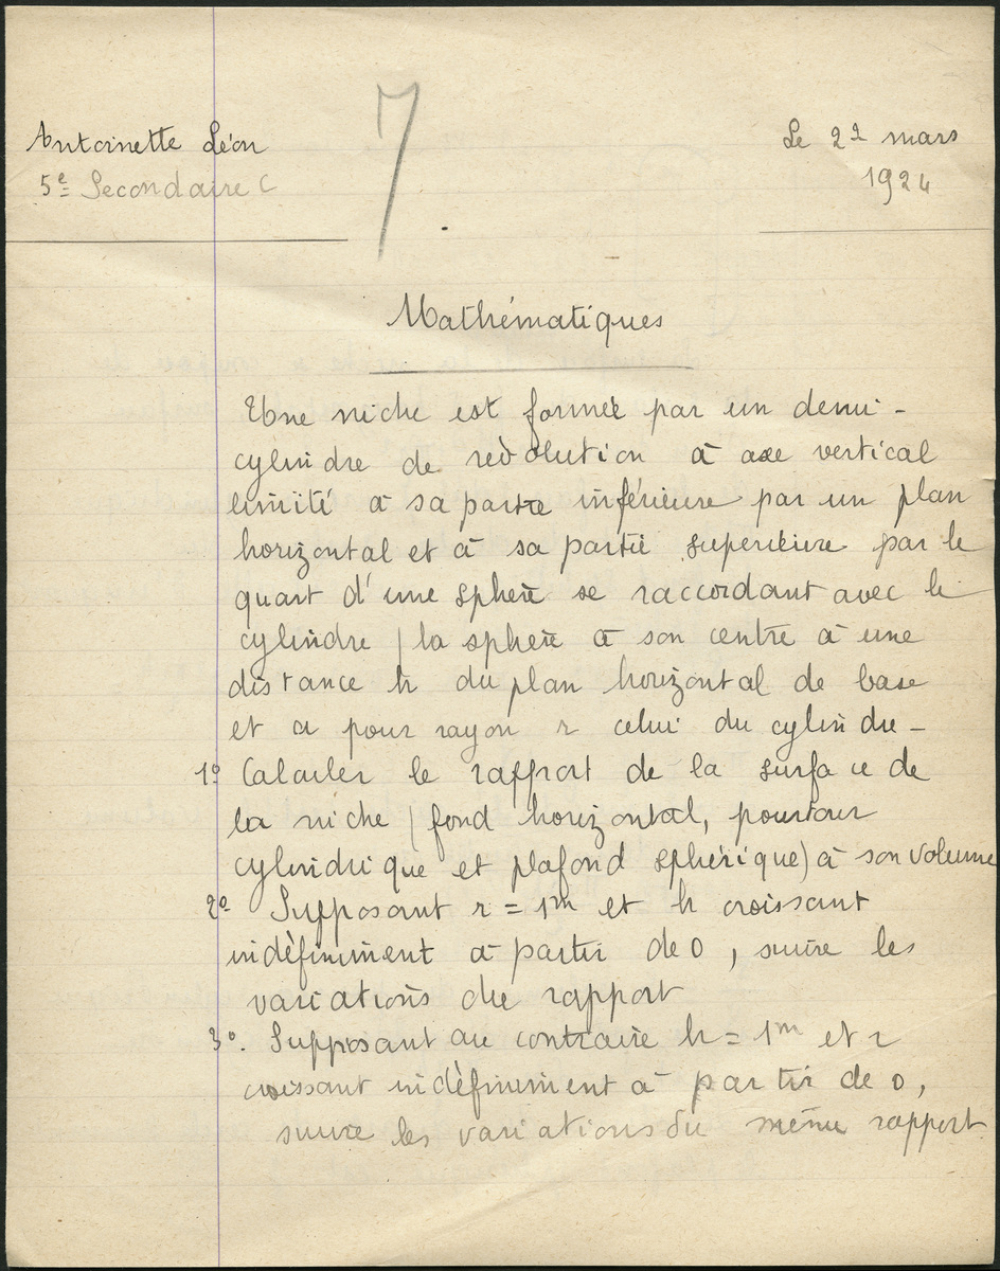 Antoinette Léon
5e Secondaire C
7
Le 22 mars
1924
Mathématiques
Une niche est formée par un demi-
cylindre de révolution à axe vertical
limité à sa partie inférieure par un plan
horizontal et à sa partie supérieure par le
quart d'une sphère se raccordant avec le
cylindre (la sphère a son centre à une
distance h du plan horizontal de base
et a pour rayon r celui du cylindre -
1º Calculer le rapport de la surface de
la niche (fond horizontal, pourtour
cylindrique et plafond sphérique) à son volume
2º Supposant r = 1m et h croissant
indéfiniment à partir de 0, suivre les
variations du rapport
3º. Supposant au contraire h = 1m et r
croissant indéfiniment à partir de 0,
suivre les variations du même rapport